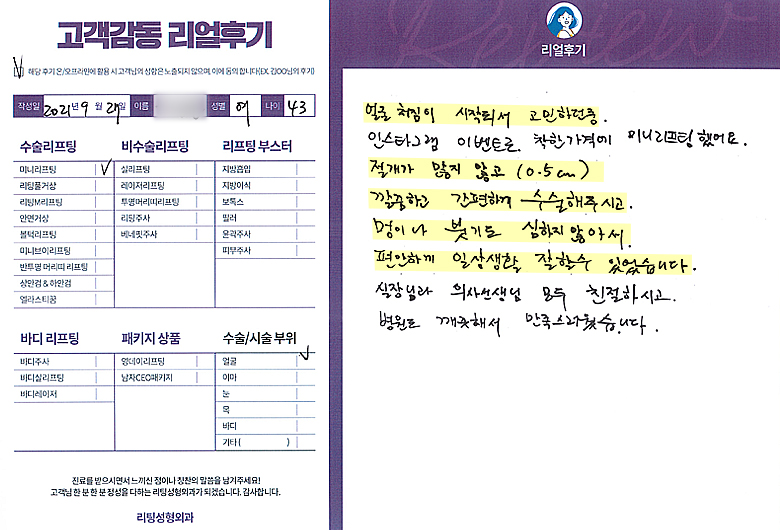 고객감동 리얼후기
해당 후기 온/오프라인에 활용 시 고객님의 성함은 노출되지 않으며, 이에 동의 합니다(EX. 김OO님의 후기)
작성일 2021년 9월 27일 이름 성별 여 나이 43
수술리프팅
미니리프팅
리팅풀거상
리팅M리프팅
안면거상
볼턱리프팅
미니브이리프팅
반투명 머리띠 리프팅
상안검 & 하안검
엘라스티꿈
비수술리프팅
실리프팅
레이저리프팅
투명머리띠리프팅
리팅주사
베네핏주사
리프팅 부스터
지방흡입
지방이식
보톡스
필러
윤곽주사
피부주사
바디 리프팅
바디주사
바디실리프팅
바디레이저
패키지 상품
영데이리프팅
남자CEO패키지
수술/시술 부위
얼굴
이마
눈
목
바디
기타 ( )
진료를 받으시면서 느끼신 점이나 칭찬의 말씀을 남겨주세요!
고객님 한 분 한 분 정성을 다하는 리팅성형외과가 되겠습니다. 감사합니다.
리팅성형외과
Review
리얼후기
얼굴 처짐이 시작되서 고민하던중.
인스타그램 이벤트로. 착한가격에 미니리프팅 했어요.
절개가 많지 않고 (0.5cm)
깔끔하고 간편하게 수술해주시고.
멍이나 붓기도 심하지 않아서.
편안하게 일상생활 잘할수 있었습니다.
실장님과 의사선생님 모두 친절하시고.
병원도 깨끗해서 만족스러웠습니다.